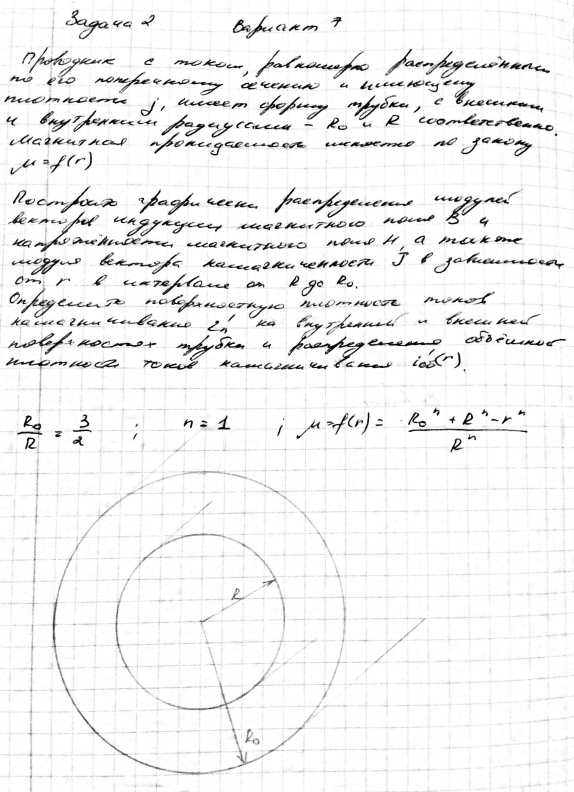 Задача 2 Вариант 7
Проводник с током, равномерно распределённым
по его поперечному сечению и имеющему
плотность j, имеет форму трубки, с внешним
и внутренним радиусами - R₀ и R соответственно.
Магнитная проницаемость меняется по закону
μ=f(r)
Построить графически распределения модулей
векторов индукции магнитного поля B и
напряжённости магнитного поля H, а также
модуля вектора намагниченности J в зависимости
от r в интервале от R до R₀.
Определить поверхностную плотность токов
намагничивания i'н на внутренней и внешней
поверхностях трубки и распределение объёмной
плотности токов намагничивания i'об(r).
R₀/R = 3/2 ; n = 1 ; μ=f(r) = (R₀ⁿ + Rⁿ - rⁿ)/Rⁿ
R
R₀